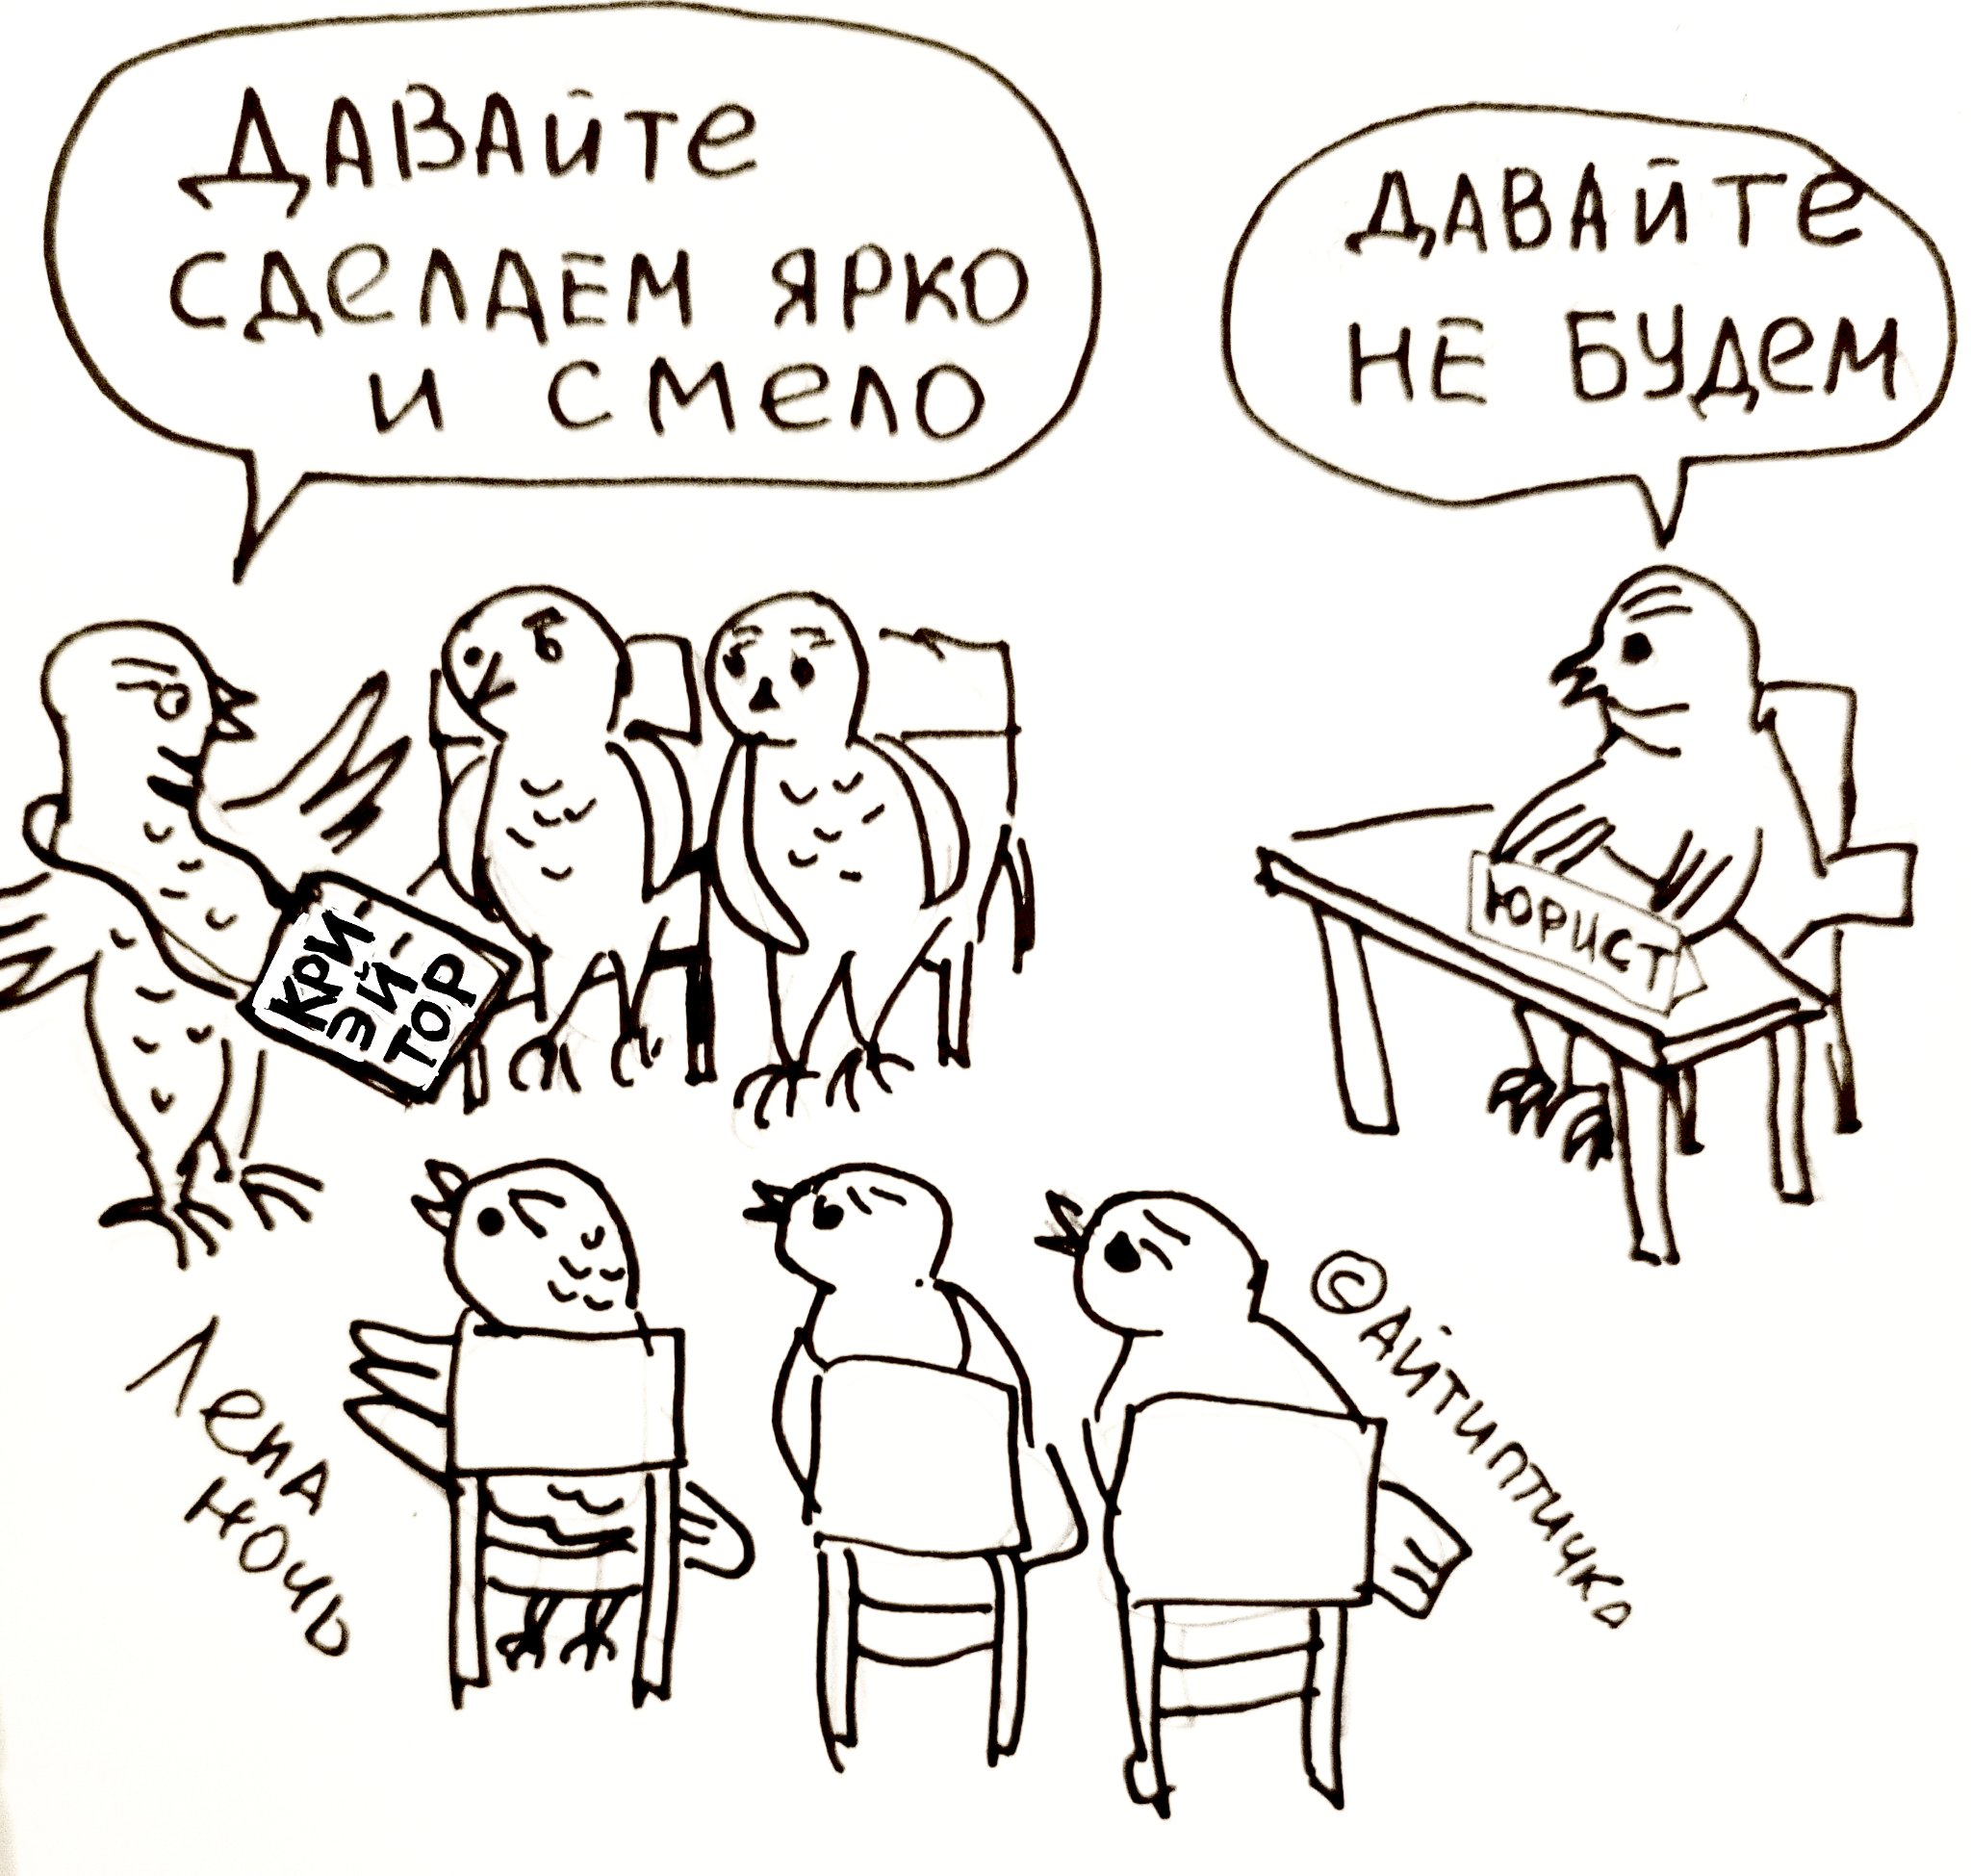 ДАВАЙТЕ
СДЕЛАЕМ ЯРКО
И СМЕЛО
ДАВАЙТЕ
НЕ БУДЕМ
КРИ
ЭЙ
ТОР
ЮРИСТ
Лена
Ночь
© АЙТИПТИЧКО